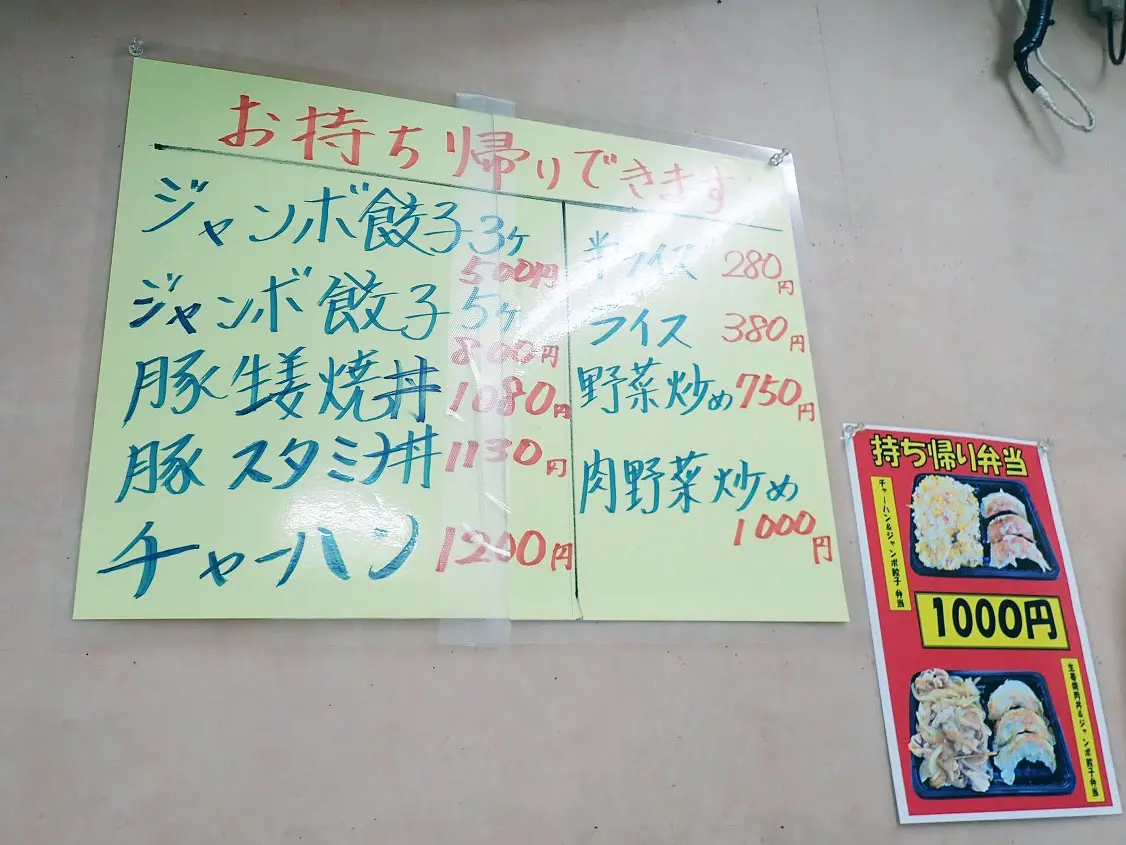 お持ち帰りできます
ジャンボ餃子3ヶ
500円
ジャンボ餃子5ヶ
800円
豚生姜焼丼 1080円
豚スタミナ丼 1130円
チャーハン 1200円
半ライス 280円
ライス 380円
野菜炒め 750円
肉野菜炒め
1000円
持ち帰り弁当
チャーハン&ジャンボ餃子 弁当
1000円
生姜焼肉丼&ジャンボ餃子弁当